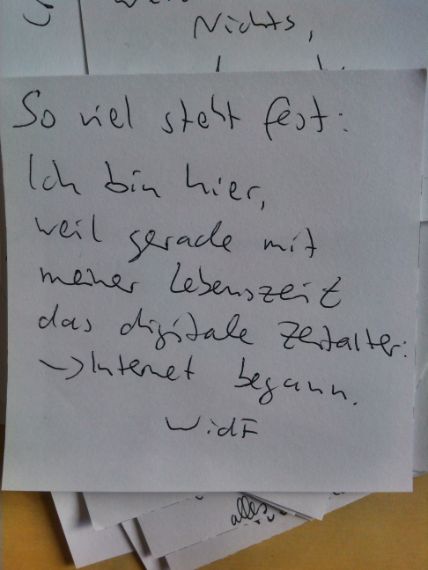 Nichts,
So viel steht fest:
Ich bin hier,
weil gerade mit
meiner Lebenszeit
das digitale Zeitalter:
→ Internet begann.
WidF
alles